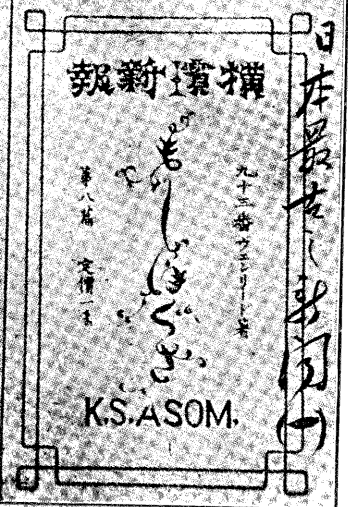 日本最古之新聞(一)
横濱新報
九十三番ウエンリート著
もしほぐさ
第八篇 定價一
K.S.ASOM.